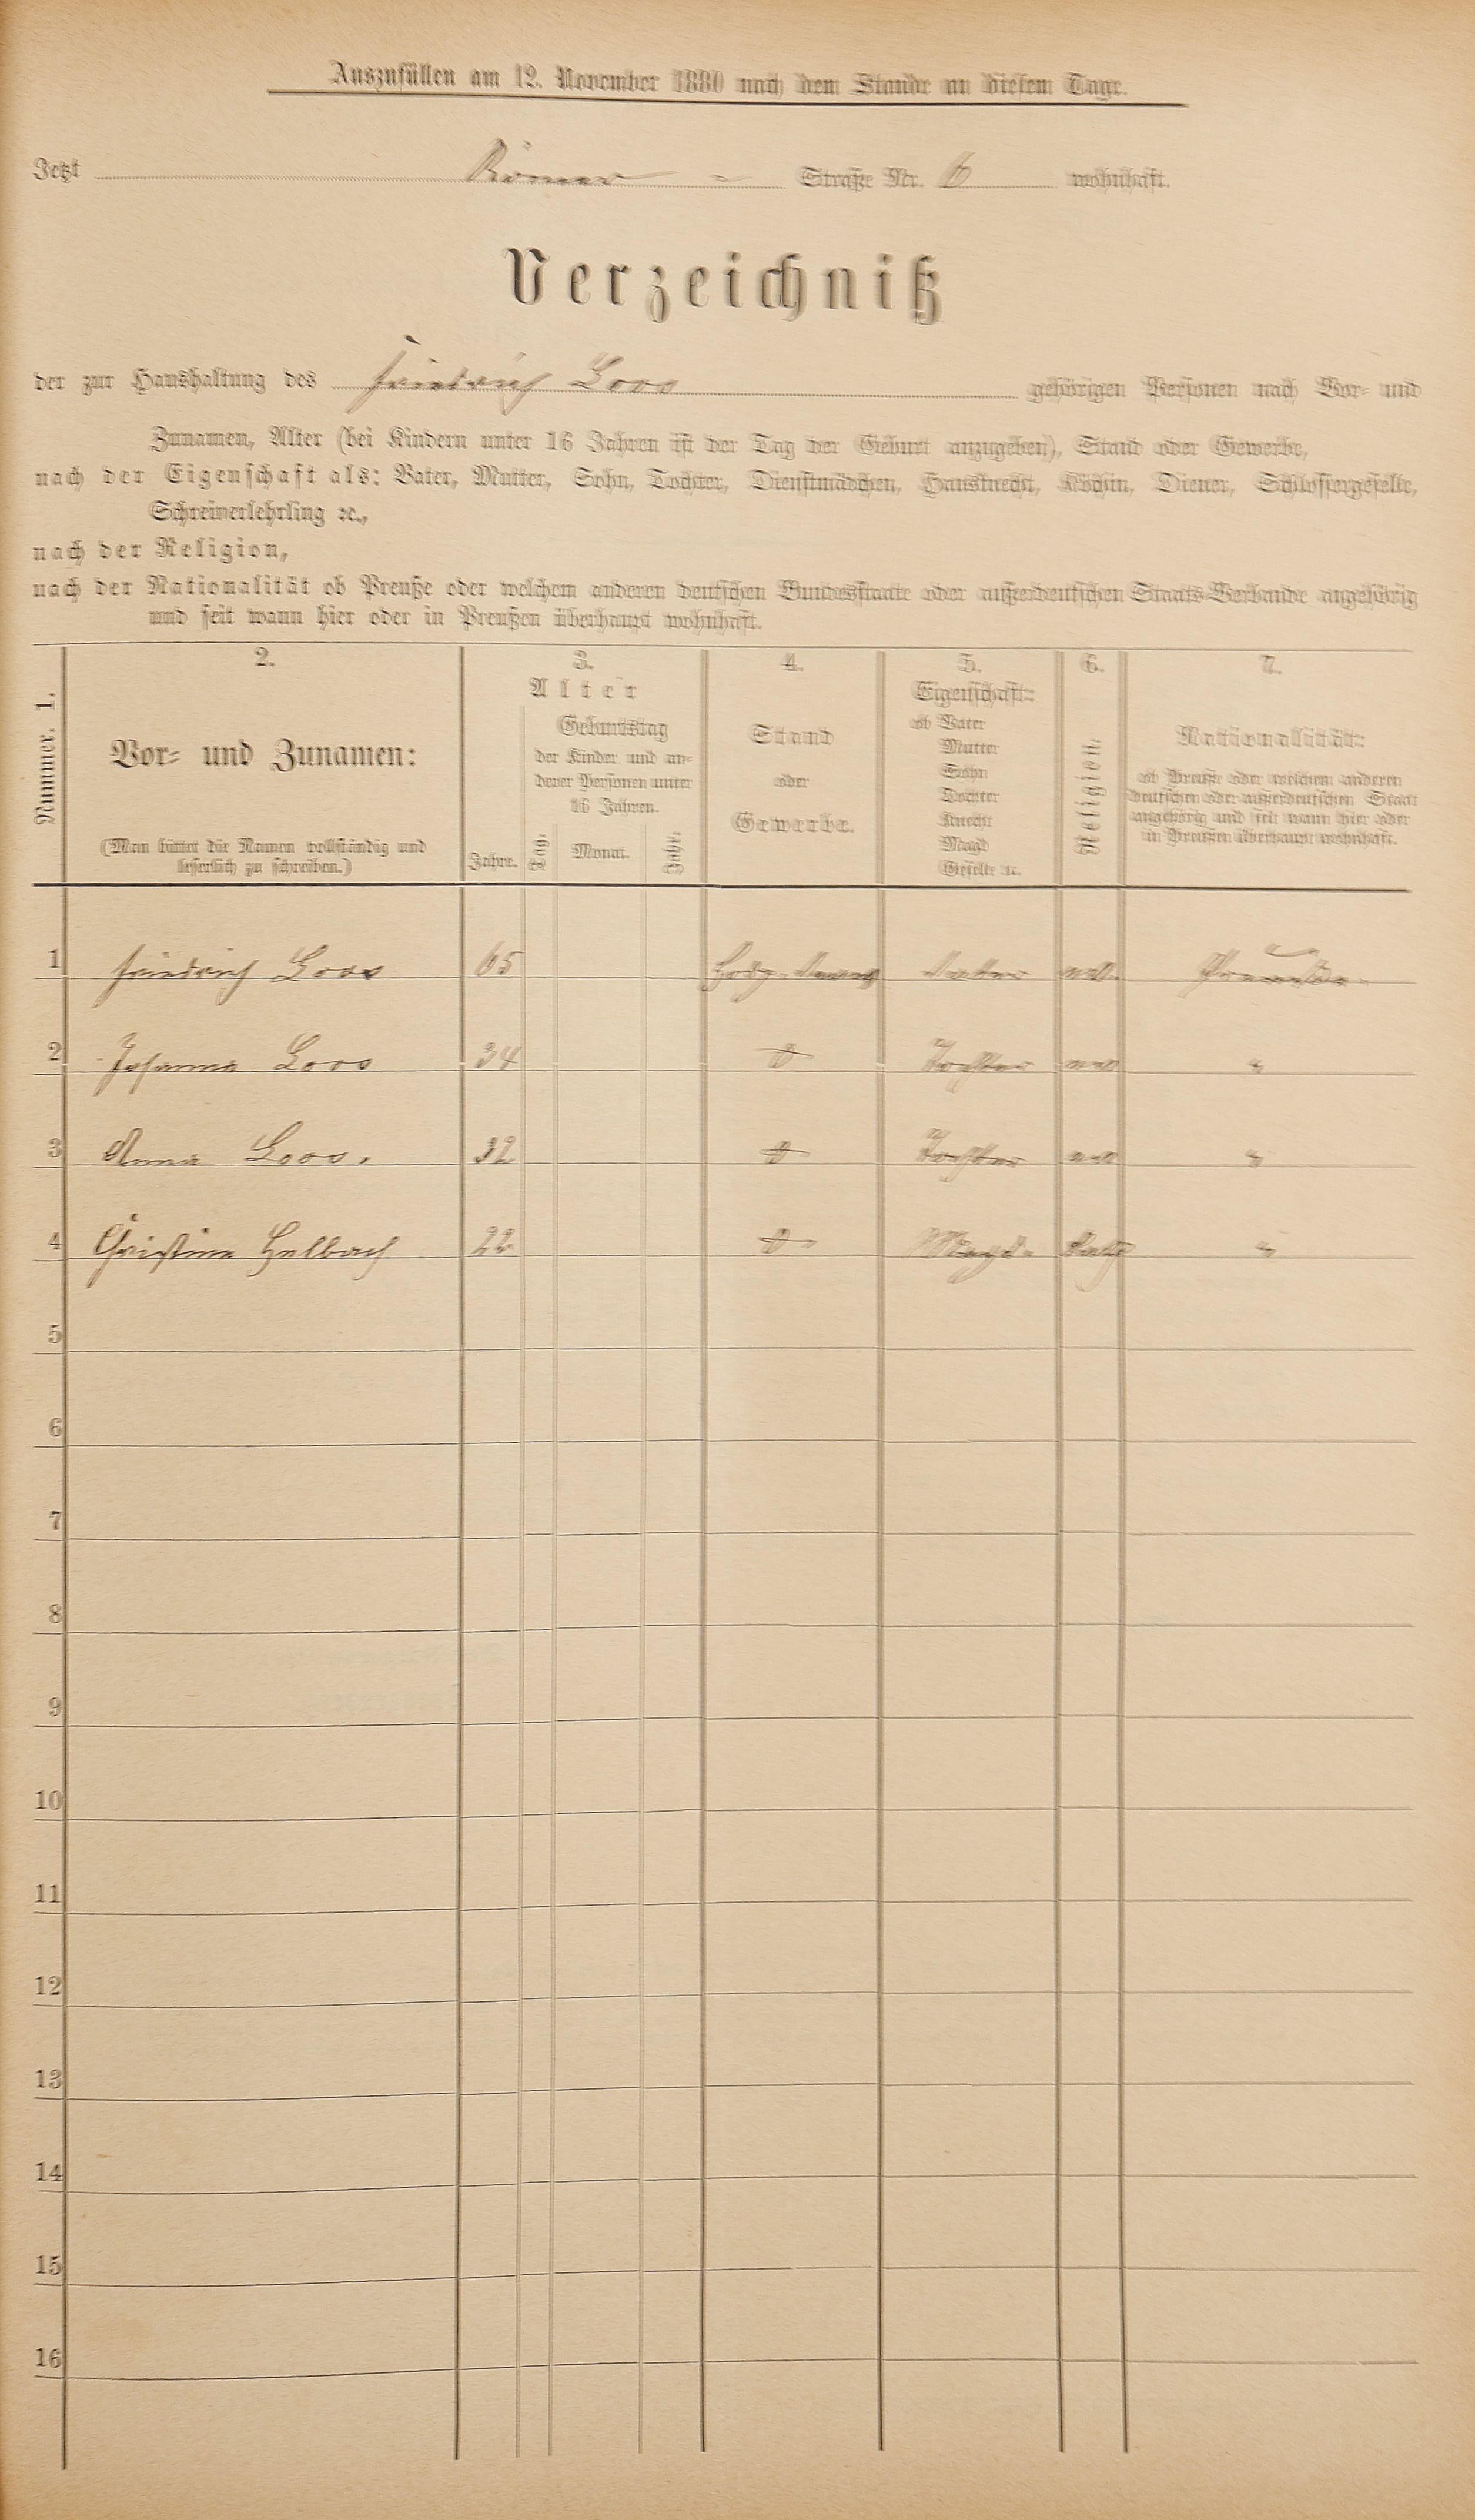 Auszufüllen am 12. November 1880 nach dem Stande an diesem Tage.
Jetzt Römer - Straße Nr. 6 wohnhaft.
Verzeichniß
der zur Haushaltung des Friedrich Loos gehörigen Personen nach Vor- und
Zunamen, Alter (bei Kindern unter 16 Jahren ist der Tag der Geburt anzugeben), Stand oder Gewerbe,
nach der Eigenschaft als: Vater, Mutter, Sohn, Tochter, Dienstmädchen, Hausknecht, Köchin, Diener, Schlossergeselle,
Schreinerlehrling ꝛc.,
nach der Religion,
nach der Nationalität ob Preuße oder welchem anderen deutschen Bundesstaate oder außerdeutschen Staats-Verbande angehörig
und seit wann hier oder in Preußen überhaupt wohnhaft.
Nummer. 1.
2.
Vor- und Zunamen:
(Man bittet die Namen vollständig und
leserlich zu schreiben.)
3.
Alter
Geburtstag
der Kinder und an-
derer Personen unter
16 Jahren.
Jahre. Tag. Monat. Jahr.
4.
Stand
oder
Gewerbe.
5.
Eigenschaft:
ob Vater
Mutter
Sohn
Tochter
Knecht
Magd
Geselle ꝛc.
6.
Religion.
7.
Nationalität:
ob Preuße oder welchem anderen
deutschen oder außerdeutschen Staat
angehörig und seit wann hier oder
in Preußen überhaupt wohnhaft.
1 Friedrich Loos 65 Vatter ev. Preusse
2 Johanna Loos 34 Tochter ev "
3 Anna Loos. 32 Tochter ev "
4 Christine Helbach 22 Magd Kath "
5
6
7
8
9
10
11
12
13
14
15
16